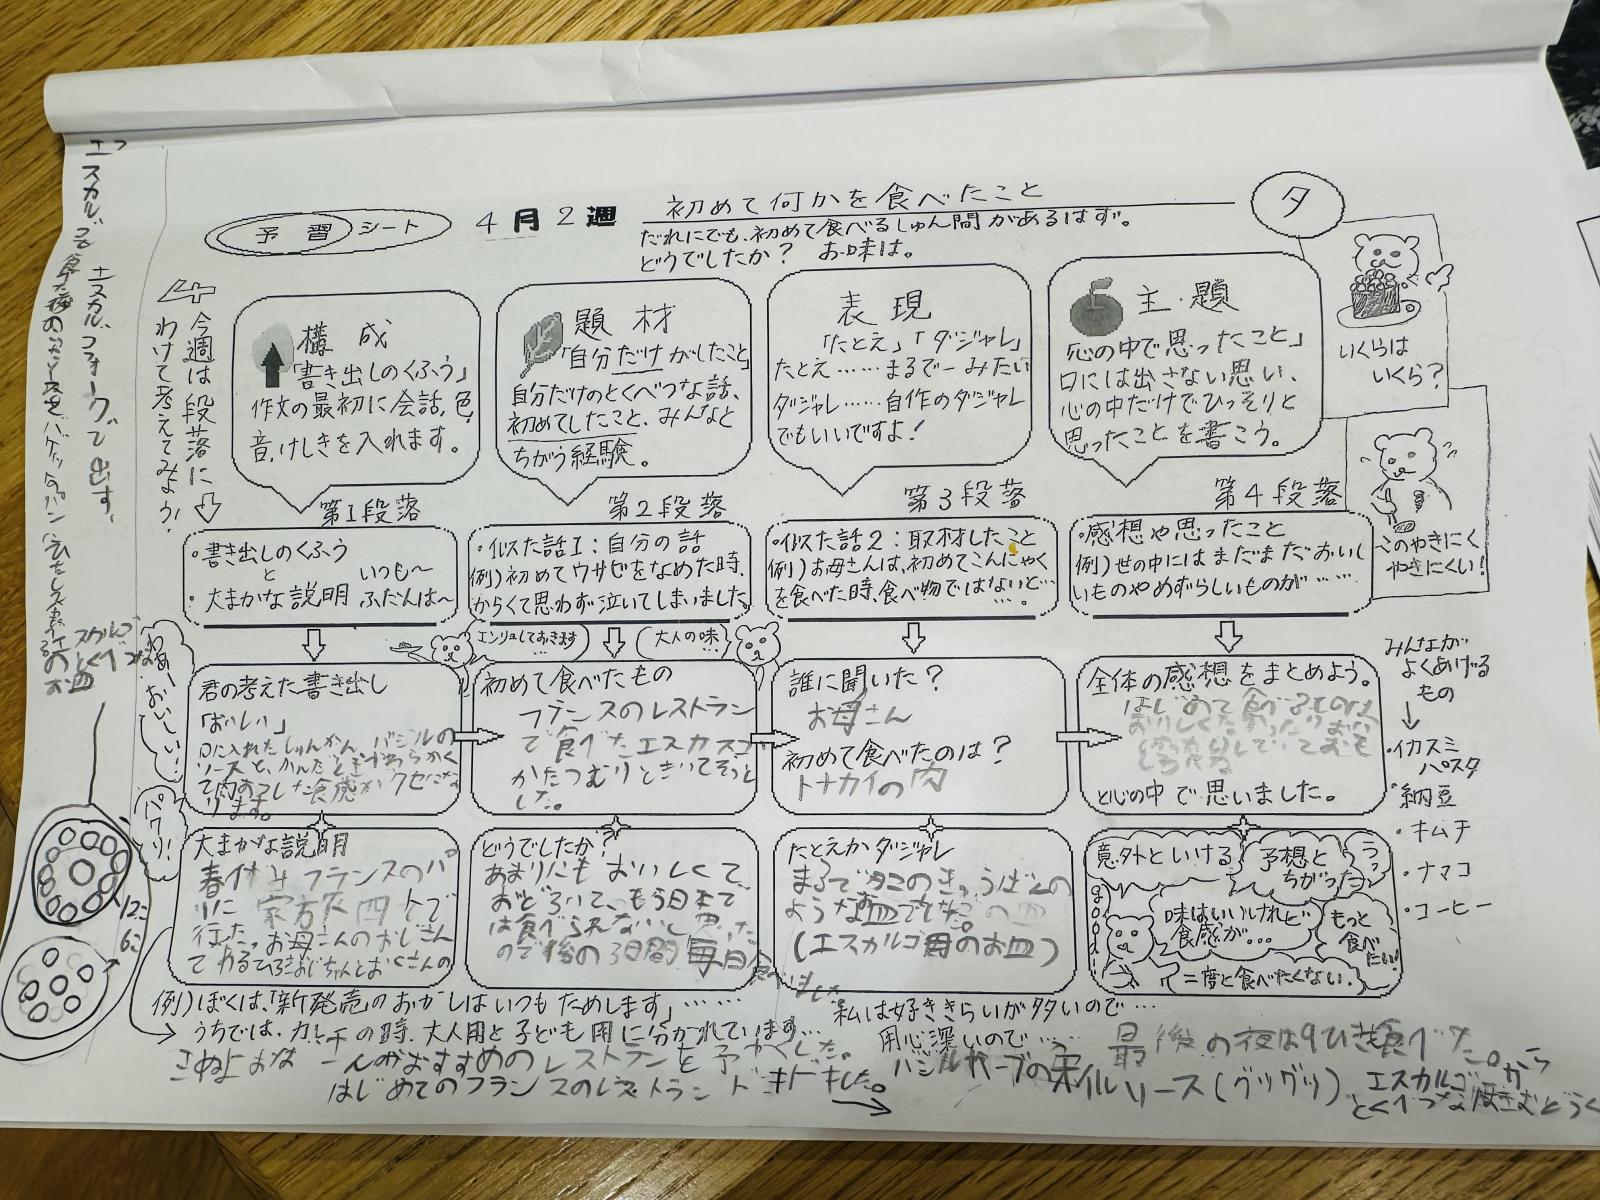 予習シート
4月2週
初めて何かを食べたこと
だれにでも、初めて食べるしゅん間があるはず。
どうでしたか? お味は。
タ
今週は段落に
わけて考えてみよう!
構成
「書き出しのくふう」
作文の最初に会話、色、
音、けしきを入れます。
題材
「自分だけがしたこと」
自分だけのとくべつな話、
初めてしたこと、みんなと
ちがう経験。
表現
「たとえ」「ダジャレ」
たとえ……まるで〜みたい
ダジャレ……自作のダジャレ
でもいいですよ!
主題
「心の中で思ったこと」
口には出さない思い、
心の中だけでひっそりと
思ったことを書こう。
いくらは
いくら?
このやきにく
やきにくい!
第1段落
・書き出しのくふう
と
・大まかな説明
いつも〜
ふだんは〜
第2段落
・似た話1:自分の話
例)初めてワサビをなめた時、
からくて思わず泣いてしまいました
第3段落
・似た話2:取材したこと
例)お母さんは、初めてこんにゃく
を食べた時、食べ物ではないと…
…。
第4段落
・感想や思ったこと
例)世の中にはまだまだおいし
いものやめずらしいものが……
わあーおいしい!
パクリ!
君の考えた書き出し
「おいしい」
口に入れたしゅんかん、バジルの
ソースと、かんだときやわらかく
食感がクセにな
ります。
エンリョしておきます
…
大人の味…
初めて食べたもの
フランスのレストラン
で食べたエスカルゴ
かたつむりときいてぞっと
した。
誰に聞いた?
お母さん
初めて食べたのは?
トナカイの肉
全体の感想をまとめよう。
はじめて食べるものは
と心の中で思いました。
みんなが
よくあげる
もの
・イカスミ
パスタ
・納豆
・キムチ
・ナマコ
・コーヒー
大まかな説明
春休みフランスのパ
リに家族四人で
行った。お母さんのおじさん
どうでしたか?
あまりにもおいしくて、
おどろいて、もう日本で
は食べられないと思った
ので後の3日間毎日食べ
ました
たとえかダジャレ
まるで
ようなお皿でした。
(エスカルゴ用のお皿)
意外といける
予想と
ちがった
うっ
good!
味はいいけれど
食感が…
もっと
食べ
たい!
二度と食べたくない.
12こ
6こ
例)ぼくは、「新発売」のおかしはいつもためします」……
うちでは、カレーの時、大人用と子ども用に分かれています…
私は好ききらいが多いので…
用心深いので…
おすすめのレストランを予やくした。
はじめてのフランスのレストランドキドキした。
最後の夜は9ひき食べた。
オイルソース(グツグツ)
エスカルゴ
とくべつな
エスカルゴ
フォークで出す。
エスカルゴを食べた後の
バゲット
のとくべつな
お皿